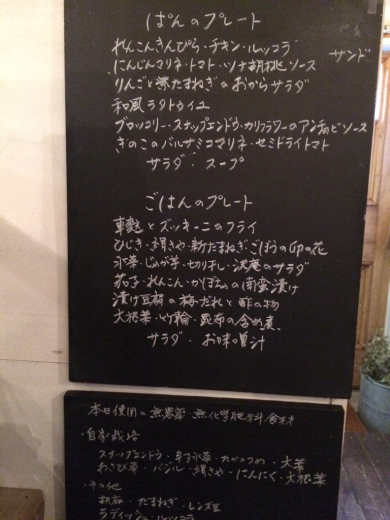 ぱんのプレート
れんこんきんぴら・チキン・ルッコラ サンド
にんじんマリネ・トマト・ツナ胡桃ソース
りんごと紫たまねぎのおからサラダ
和風ラタトゥイユ
ブロッコリー・スナップエンドウ・カリフラワーのアンチョビソース
きのこのバルサミコマリネ・セミドライトマト
サラダ・スープ
ごはんのプレート
車麩とズッキーニのフライ
ひじき・絹さや・新たまねぎ・ごぼうの卯の花
水菜・じゃが芋・切り干し・沢庵のサラダ
茄子・れんこん・かぼちゃの南蛮漬け
漬け豆腐の梅だれと酢の物
大根葉・竹輪・昆布の含め煮
サラダ・お味噌汁
本日使用の無農薬・無化学肥料食材
・自家栽培
スナップエンドウ・水菜・たかのつめ・大葉
わさび菜・バジル・絹さや・にんにく・大根葉
・その他
胡麻・たまねぎ・レンズ豆
ラディッシュ・ルッコラ